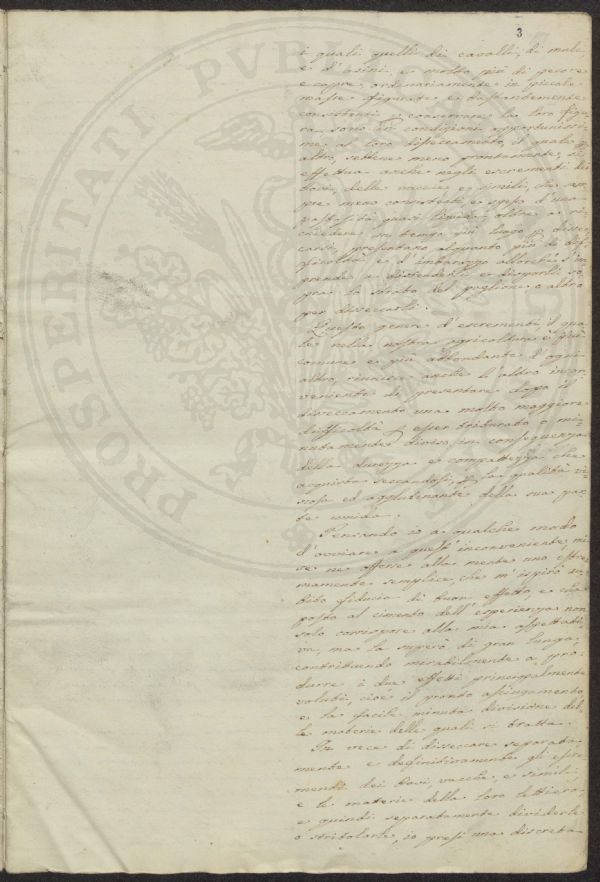 3
i quali quelli di cavalli, di muli,
e d'asini, e molto più di pecore
e capre, ordinariamente in piccole
masse figurate, e bastantemente
consistenti p conservare la loro figu-
ra, sono in condizioni opportunissi-
me al loro disseccamento, il quale p
altro, sebbene meno prontamente, si
effettua anche negli escrementi dei
bovi, delle vacche e simili, che sem-
pre meno consistenti, e spesso d'una
pastosità quasi liquida, oltre a ri-
chiedere un tempo più lungo p dissec-
carsi, presentano alquanto più di dif-
ficoltà e d'imbarazzo allorchè s'im-
prende a distenderli, e disporli so-
pra lo strato del puglione o altro
per disseccarli.
Questo genere d'escrementi, il qua-
le nella nostra agricoltura è più
comune e più abbondante d'ogni
altro, riunisce anche l'altro incon-
veniente di presentare dopo il
disseccamento una molto maggiore
difficoltà p esser triturato o mi-
nutamente diviso, in conseguenza
della durezza e compattezza che
acquista seccandosi, p la qualità vi-
scosa ed agglutinante della sua par-
te umida.
Pensando io a qualche modo
d'ovviare a quest'inconveniente, mi
se ne offerse alla mente uno estre-
mamente semplice, che m'ispirò su-
bito fiducia di buon effetto, e che
posto al cimento dell'esperienza non
solo corrispose alla mia aspettati-
va, ma la superò di gran lunga,
contribuendo mirabilmente a pro-
durre i due effetti principalmente
voluti, cioè il pronto asciugamento,
e la facile minuta divisione del-
le materie delle quali si tratta.
In vece di disseccare separata-
mente e definitivamente gli escre-
menti dei bovi, vacche, e simili,
e le materie della loro lettiera
e quindi separatamente dividerle
o stritolarle, io presi una discreta
PROSPERITATI PVBL